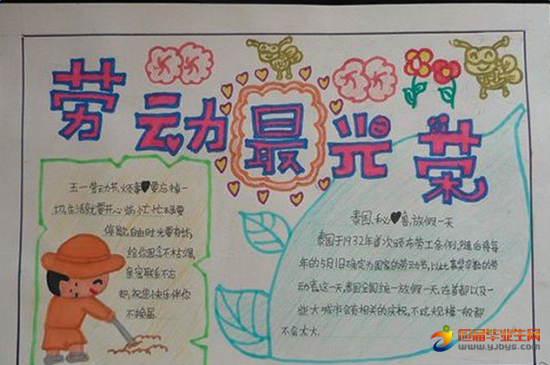 劳动最光荣
五一劳动节,烦事♥要忘掉一
切,生活就要开心些,忙忙
停歇,自由时光要有些,
给你思念不枯竭,
亲密联系不忘
却,祝您快乐伴你
不掉品
泰国、秘♥鲁放假一天
泰国于1932年首次颁布劳工条例,随后将每
年的5月1日确定为国家的劳动节,以此嘉奖辛勤的劳
动者这一天,泰国全国统一放假一天,在首都以及一
些大城市会有相关的庆祝,不过规模一般都
不会太大.
应届毕业生网
www.yjbys.com